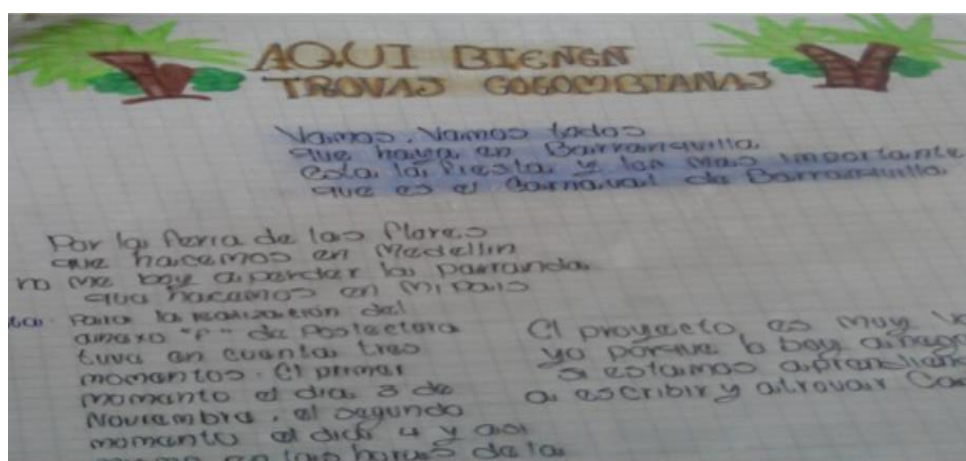 AQUI BIENEN
TROVAS COLOMBIANAS
Vamos, Vamos todos
que haya en Barranquilla
esta la fiesta y lan mas importante
que es el Carnaval de Barranquilla
Por la feria de las flores
que hacemos en Medellin
no me boy a perder la parranda
que hacemos en mi pais
ta: Para la realización del
anexo "F" de Postectora
tuve en cuenta tres
momentos. El primer
momento el dia 3 de
Noviembre, el segundo
momento el dia 4 y asi
en las horas de la
El proyecto, es muy
yo porque lo boy a
a escribir y a trovar